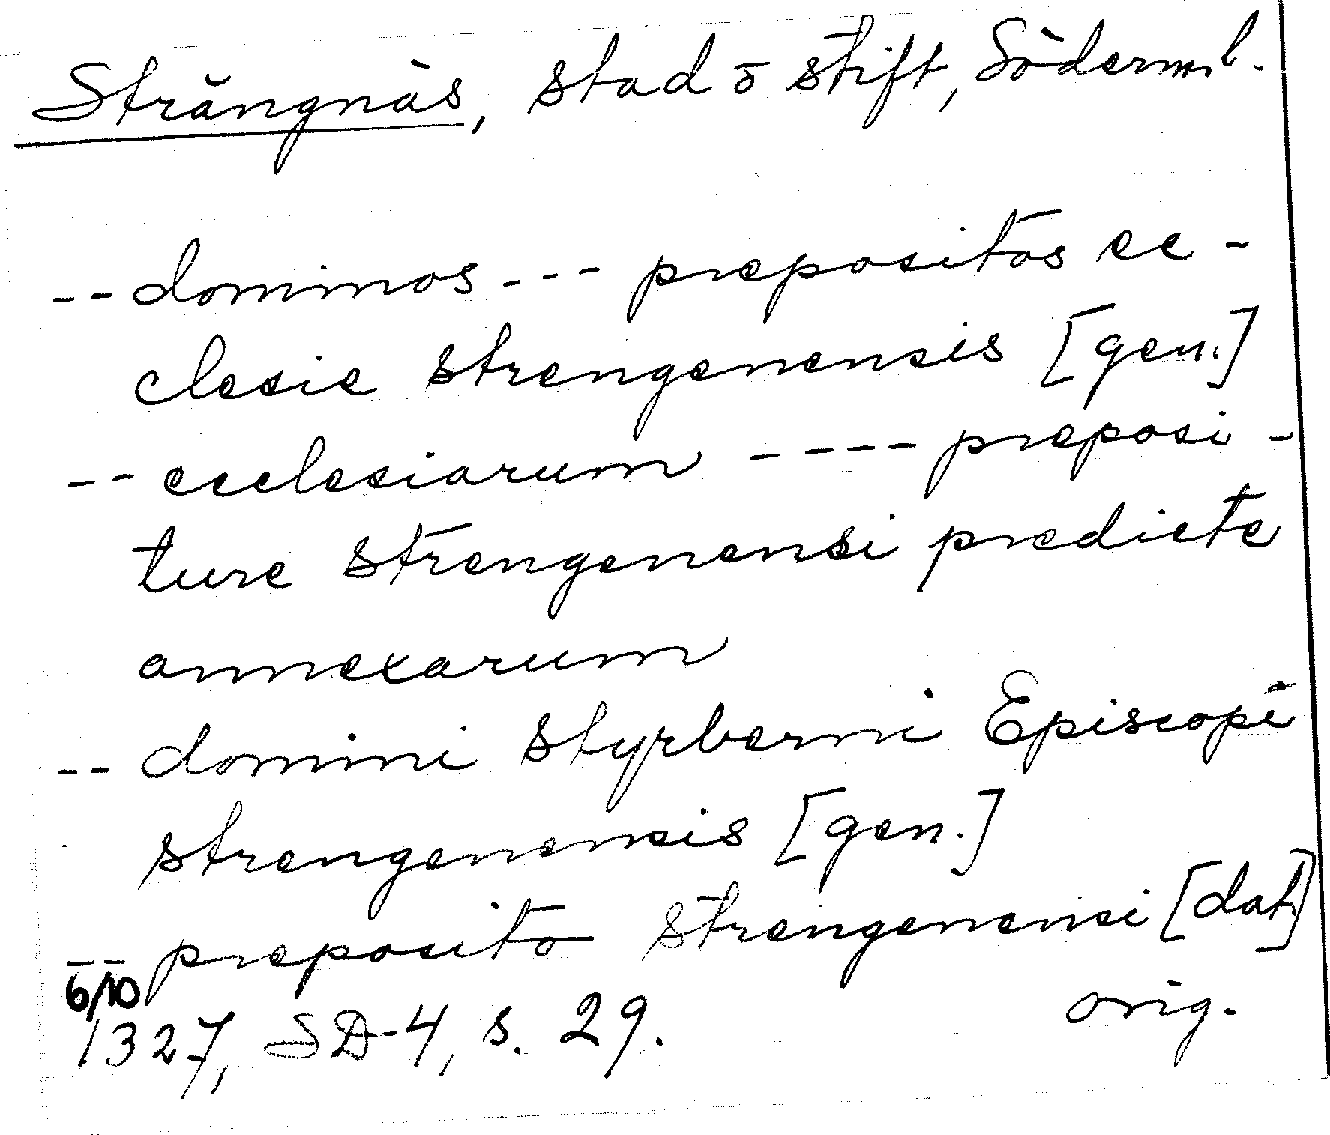 Strängnäs, stad o stift, Söderml.
-- dominos --- prepositos ec-
clesie strengenensis [gen.]
-- ecclesiarum ---- preposi-
ture strengenensi predicte
annexarum
-- domini styrberni Episcopi
strengenensis [gen.]
-- preposito strengenensi [dat]
6/10
1327, SD 4, s. 29. orig.